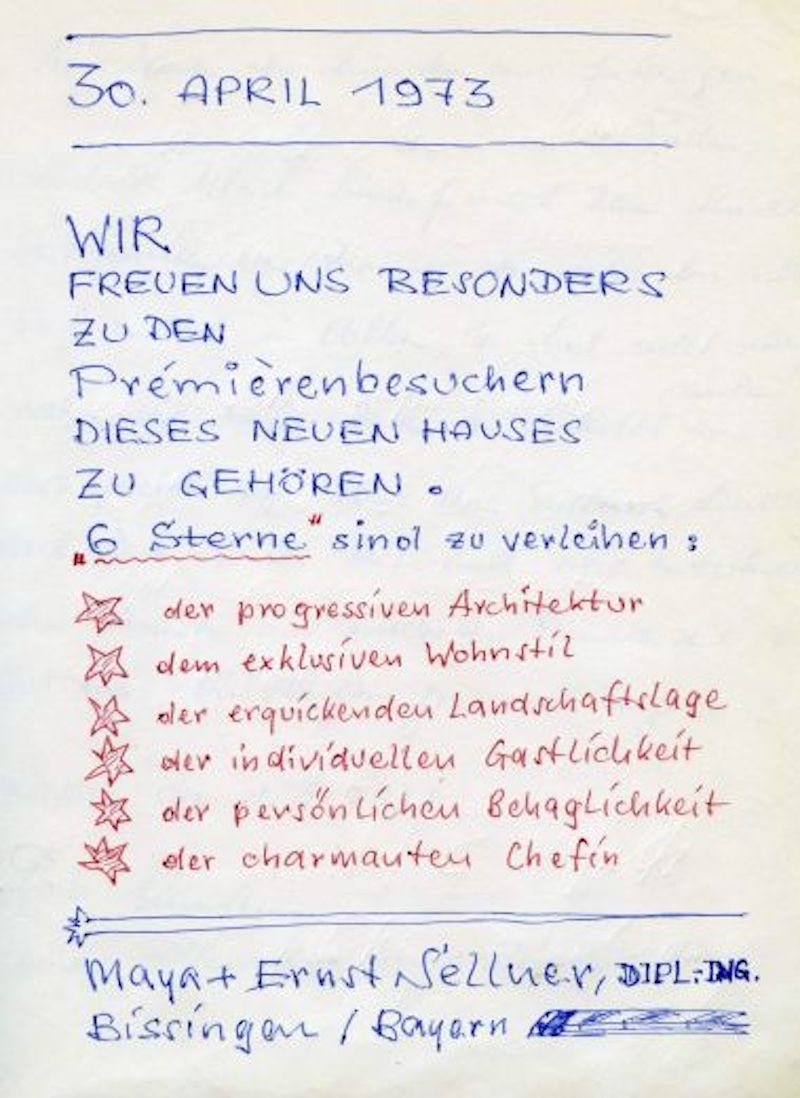 30. APRIL 1973
WIR
FREUEN UNS BESONDERS
ZU DEN
Prémièrenbesuchern
DIESES NEUEN HAUSES
ZU GEHÖREN.
„6 Sterne" sind zu verleihen:
der progressiven Architektur
dem exklusiven Wohnstil
der erquickenden Landschaftslage
der individuellen Gastlichkeit
der persönlichen Behaglichkeit
der charmanten Chefin
Maya + Ernst Sellner, DIPL.-ING.
Bissingen / Bayern